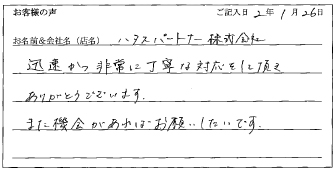 お客様の声 ご記入日 2年 1月 26日
お名前&会社名(店名) ハウスパートナー株式会社
迅速かつ非常に丁寧な対応をして頂き
ありがとうございます.
また機会があればお願いしたいです.